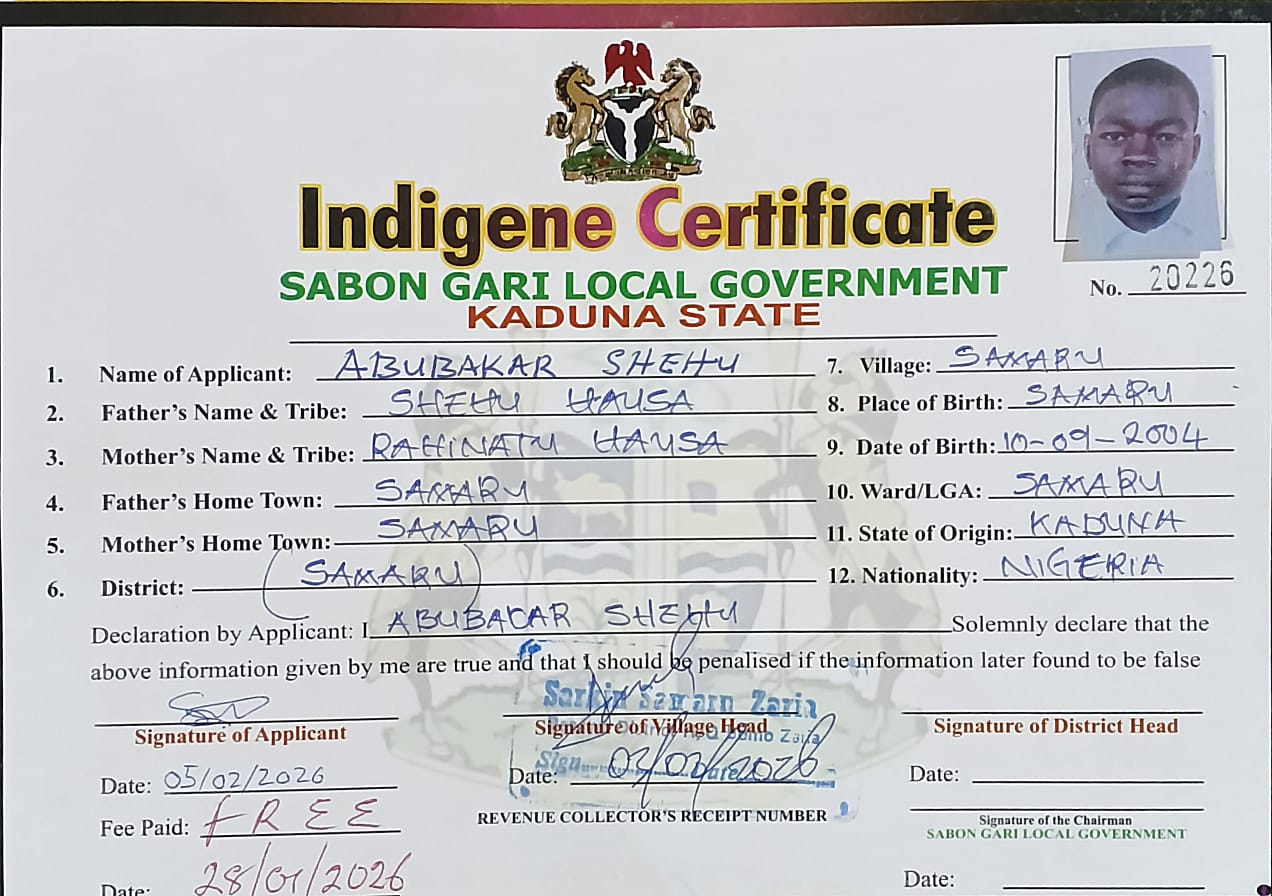 Indigene Certificate
SABON GARI LOCAL GOVERNMENT
KADUNA STATE
No. 20226
1. Name of Applicant: ABUBAKAR SHEHU
2. Father's Name & Tribe: SHEHU HAUSA
3. Mother's Name & Tribe: RAHINATU HAUSA
4. Father's Home Town: SAMARU
5. Mother's Home Town: SAMARU
6. District: (SAMARU)
7. Village: SAMARU
8. Place of Birth: SAMARU
9. Date of Birth: 10-09-2004
10. Ward/LGA: SAMARU
11. State of Origin: KADUNA
12. Nationality: NIGERIA
Declaration by Applicant: I ABUBACAR SHEHU Solemnly declare that the
above information given by me are true and that I should be penalised if the information later found to be false
Signature of Applicant
Date: 05/02/2026
Fee Paid: FREE
Date: 28/01/2026
Samaru Zaria
Signature of Village Head
Zaria
Sign
Date
Date: 2026
REVENUE COLLECTOR'S RECEIPT NUMBER
Signature of District Head
Date:
Signature of the Chairman
SABON GARI LOCAL GOVERNMENT
Date: